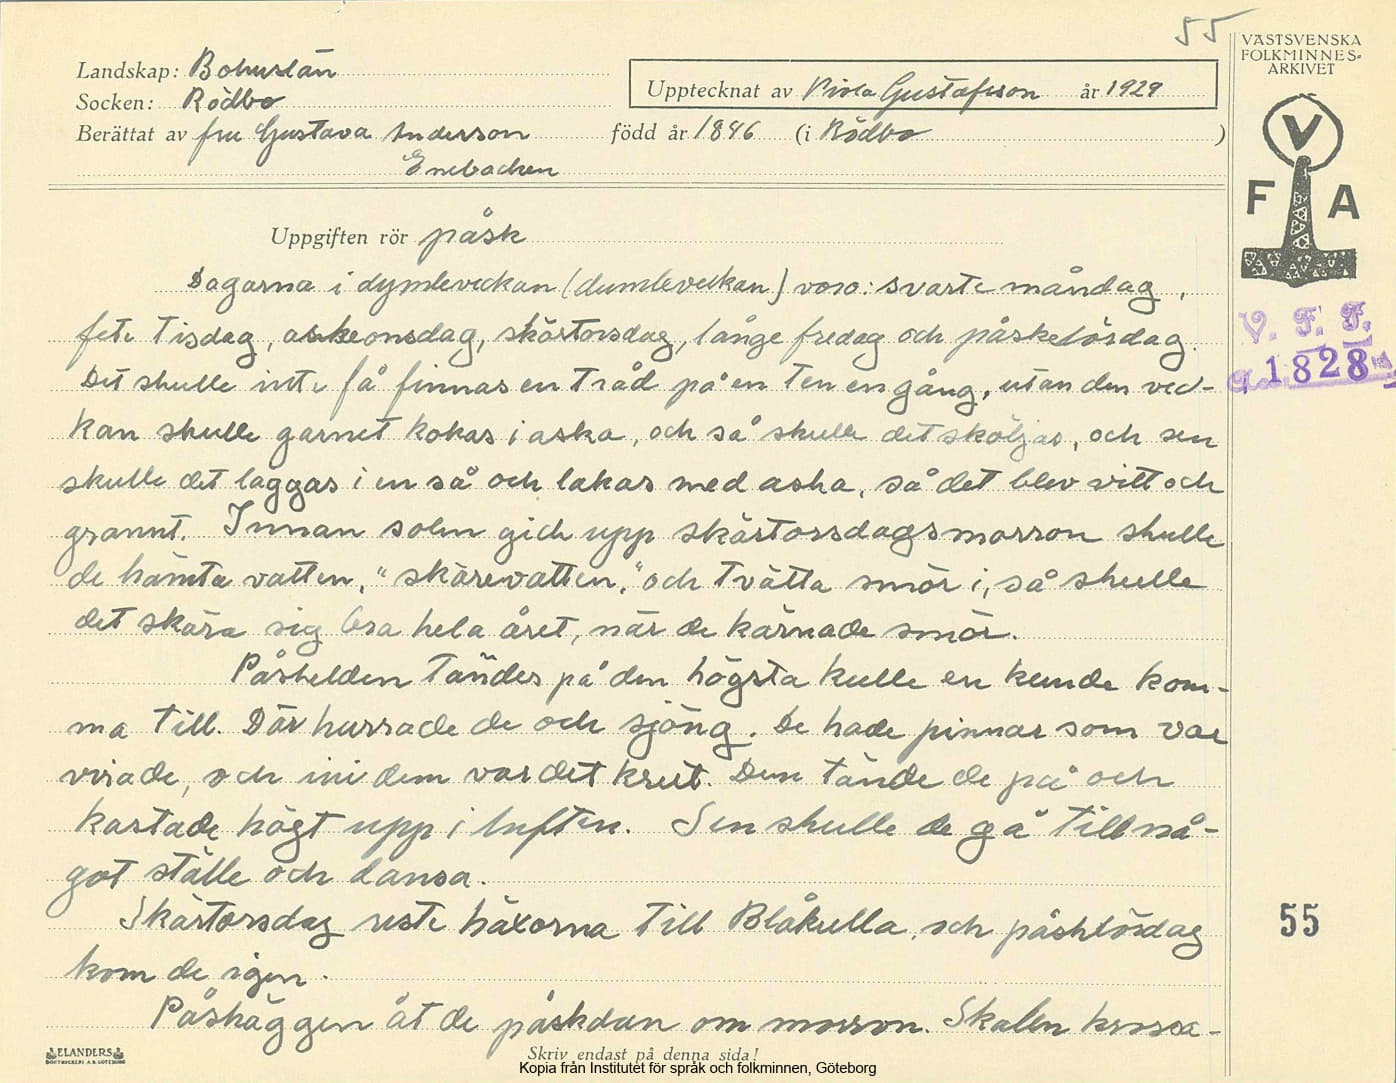 55
VÄSTSVENSKA
FOLKMINNES-
ARKIVET
Landskap: Bohuslän
Upptecknat av Viola Gustafsson år 1929
Socken: Rödbo
Berättat av fru Gustava Andersson född år 1846 (i Rödbo )
Enebacken
V
F A
Uppgiften rör påsk
Dagarna i dymleveckan (dumleveckan) voro: svarte måndag,
fete tisdag, askeonsdag, skärtorsdag, långe fredag och påskelördag.
Det skulle inte få finnas en tråd på en ten en gång, utan den vec-
kan skulle garnet kokas i aska, och så skulle det sköljas, och sen
skulle det läggas i en så och lakas med aska, så det blev vitt och
grannt. Innan solen gick upp skärtorsdagsmorron skulle
de hämta vatten, "skärevatten," och tvätta smör i, så skulle
det skära sig bra hela året, när de kärnade smör.
Påskelden tändes på den högsta kulle en kunde kom-
ma till. Där hurrade de och sjöng. De hade pinnar som var
virade, och ini dem var det krut. Den tände de på och
kastade högt upp i luften. Sen skulle de gå till nå-
got ställe och dansa.
Skärtorsdag reste häxorna till Blåkulla, och påsklördag
kom de igen.
Påskäggen åt de påskdan om morron. Skalen krossa-
V. F. F.
1828
55
ELANDERS
BOKTRYCKERI A.B. GÖTEBORG
Skriv endast på denna sida!
Kopia från Institutet för språk och folkminnen, Göteborg